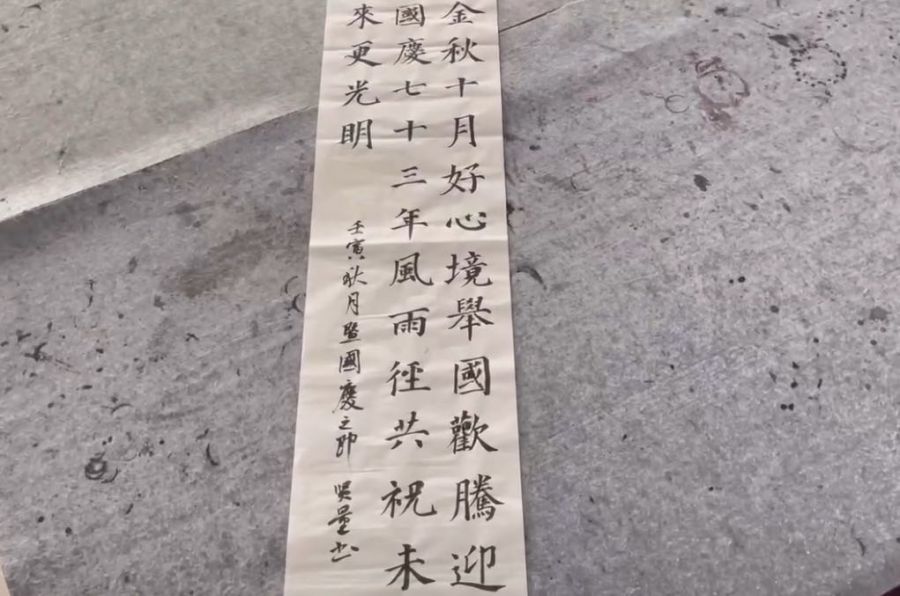 金秋十月好心境舉國歡騰迎
國慶七十三年風雨徑共祝未
來更光明
壬寅秋月暨國慶之節 吳量书